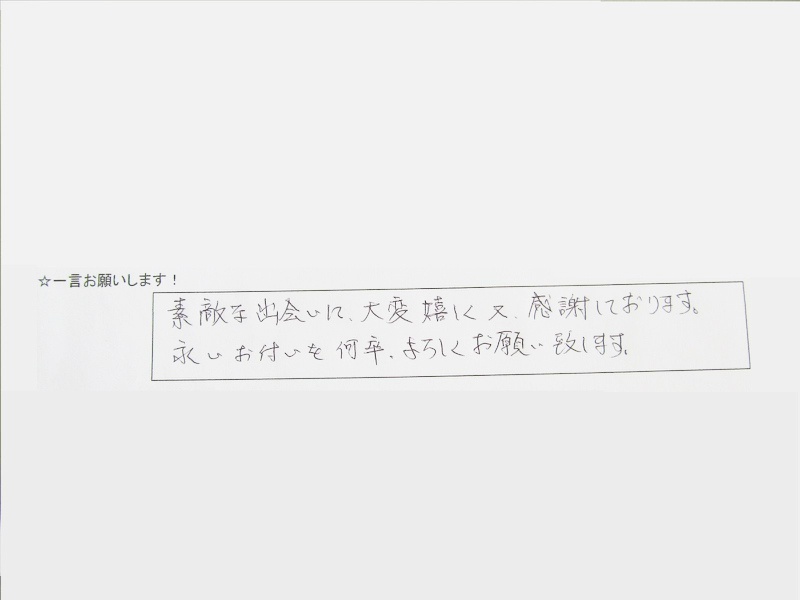 ☆一言お願いします！
素敵な出会いに、大変嬉しく又、感謝しております。
永いお付いを何卒、よろしくお願い致します。